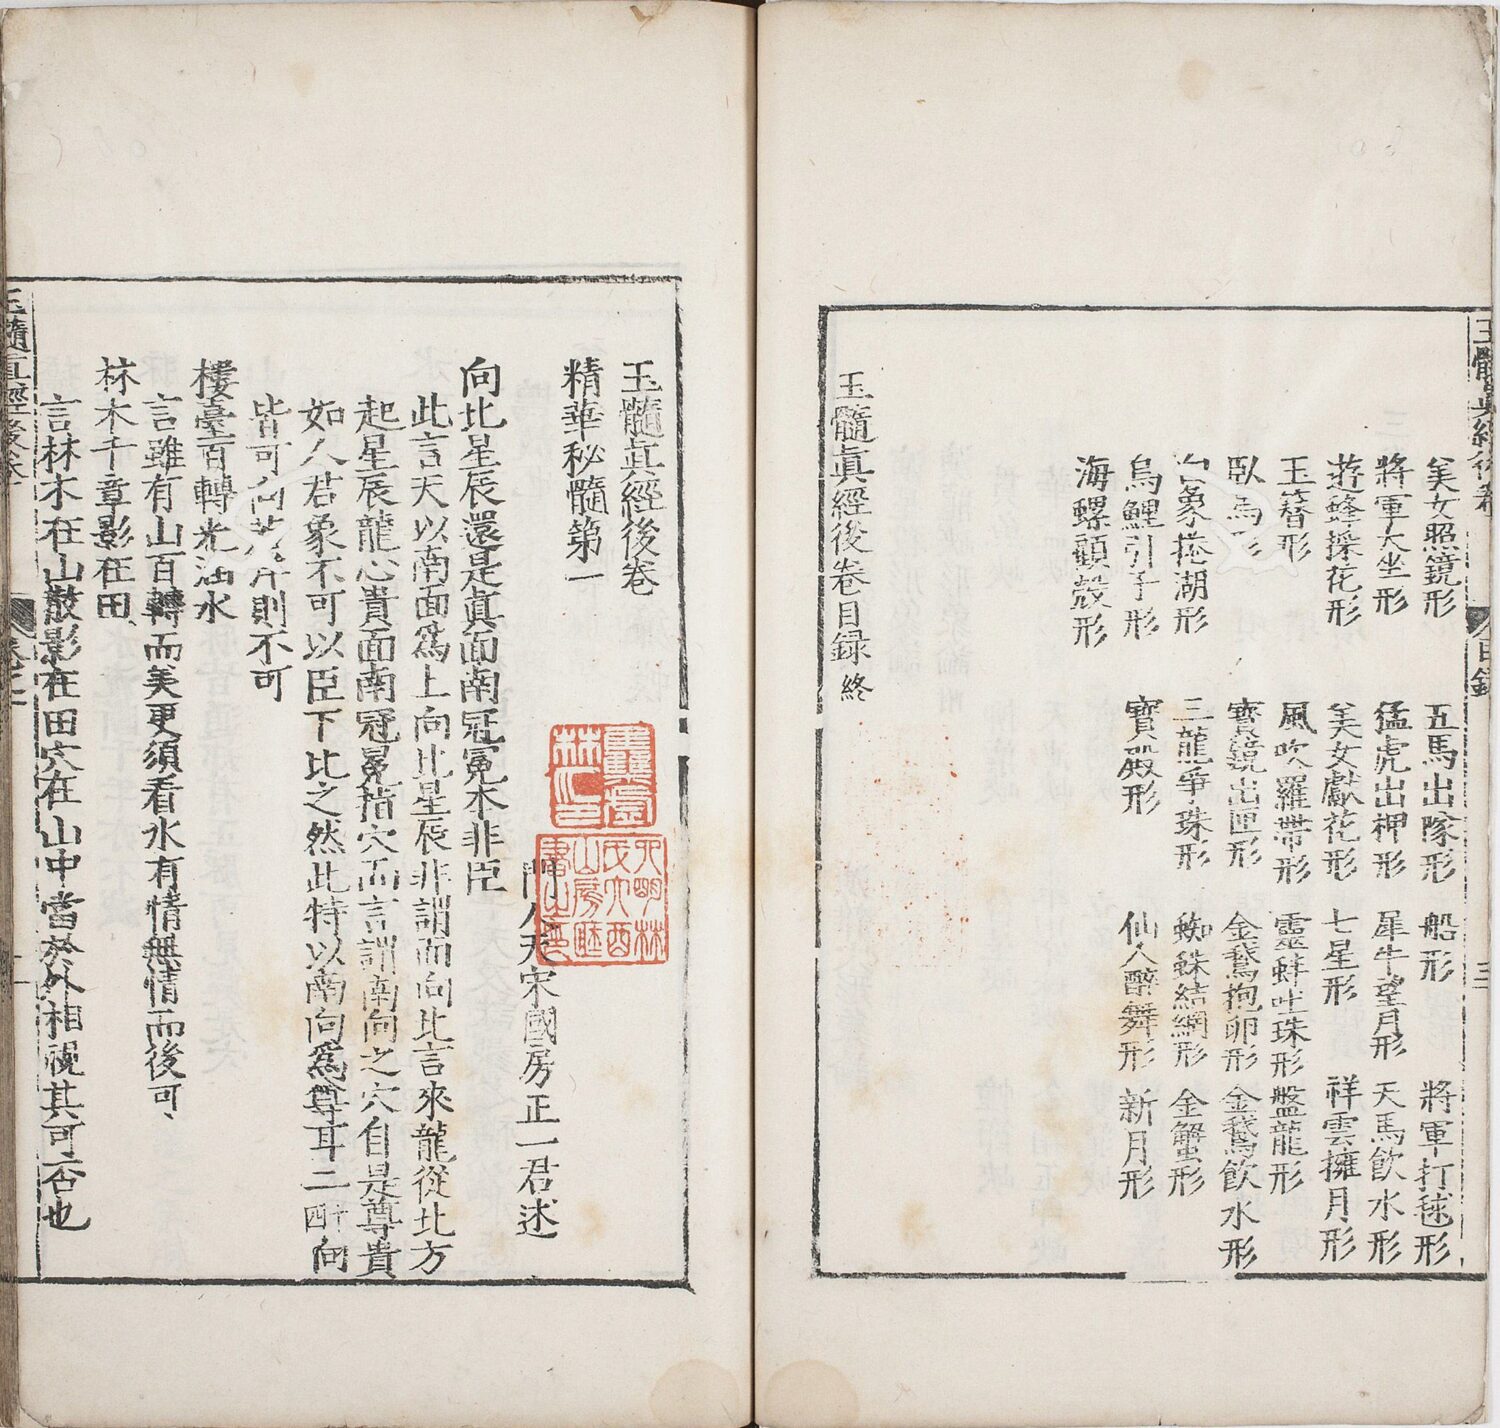 玉髓真經後卷 目錄 三
美女照鏡形 五馬出隊形 船形 將軍打毬形
將軍大坐形 猛虎出柙形 犀牛望月形 天馬飲水形
遊蜂採花形 美女獻花形 七星形 祥雲擁月形
玉簪形 風吹羅帶形 靈蚌吐珠形 盤龍形
臥馬形 寶鏡出匣形 金鵞抱卵形 金鵞飲水形
白象捲湖形 三龍爭珠形 蜘蛛結網形 金蟹形
烏鯉引子形 寶殿形 仙人醉舞形 新月形
海螺顧殼形
玉髓眞經後卷目録終
玉髓眞經後卷
精華秘髓第一
門人天宋國房正一君述
向北星辰還是眞面南冠冕本非臣
此言天以南面爲上向北星辰非謂面向北言來龍從北方
起星辰龍心貴面南冠冕指穴而言謂南向之穴自是尊貴
如人君象不可以臣下比之然此特以南向爲尊耳二十四向
皆可向則不可
樓臺百轉光涵水
言雖有山百轉而美更須看水有情無情而後可
林木千章影在田
言林木在山散影在田穴在山中當於外相視其可否也
玉髓眞經後卷 卷之一 一